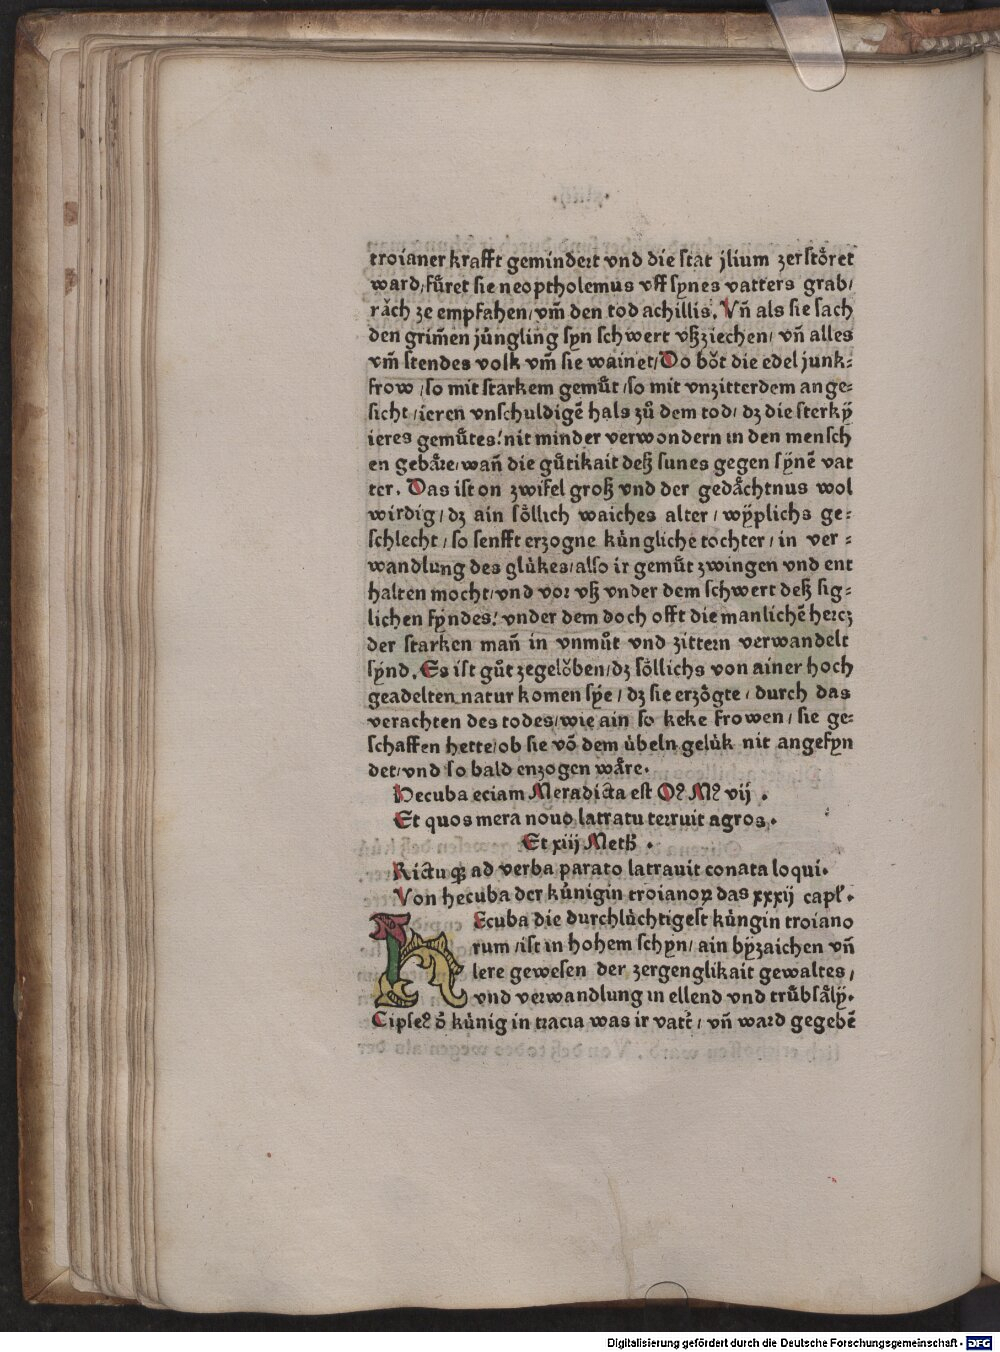 troianer krafft gemindert vnd die stat jlium zerstoͤret
ward/fuͤret sie neoptholemus vff synes vatters grab/
raͤch ze empfahen/vm̃ den tod achillis. Vñ als sie sach
den grim̃en juͤngling syn schwert vßziechen/ vñ alles
vm̃ stendes volk vm̃ sie wainet/Do boͤt die edel junk⸗
frow/so mit starkem gemuͤt/so mit vnzitterdem ange⸗
sicht/ieren vnschuldigẽ hals zuͦ dem tod/ dz die sterkÿ
ieres gemuͤtes! nit minder verwondern in den mensch
en gebaͤre/wañ die guͤtikait deß sunes gegen sÿnẽ vat
ter. Das ist on zwifel groß vnd der gedaͤchtnus wol
wirdig/dz ain soͤllich waiches alter/wÿplichs ge⸗
schlecht/so senfft erzogne kuͤngliche tochter/in ver⸗
wandlung des gluͤkes/also ir gemuͤt zwingen vnd ent
halten mocht/vnd vor vß vnder dem schwert deß sig⸗
lichen fyndes! vnder dem doch offt die manlichẽ hercz
der starken mañ in vnmuͦt vnd zittern verwandelt
sÿnd. Es ist guͦt zegeloͤben/dz soͤllichs von ainer hoch
geadelten natur komen sÿe/dz sie erzoͤgte/durch das
verachten des todes/wie ain so keke frowen/sie ge⸗
schaffen hette/ob sie võ dem uͤbeln geluͤk nit angefyn
det/vnd so bald enzogen waͤre.
Hecuba eciam Meradicta est Oꝰ Mꝰ vij .
Et quos mera nouo latratu terruit agros.
Et xiij Metß .
Rictuqꝫ ad verba parato latrauit conata loqui.
Von hecuba der kuͤnigin troianoꝝ das xxxij capľ.
HEcuba die durchluͤchtigest kuͤngin troiano
rum/ist in hohem schyn/ain bÿzaichen vñ
lere gewesen der zergenglikait gewaltes/
vnd verwandlung in ellend vnd truͤbsaͤlÿ.
Cipseꝰ ð kuͤnig in tracia was ir vatť/vñ ward gegebẽ
Digitalisierung gefördert durch die Deutsche Forschungsgemeinschaft - DFG